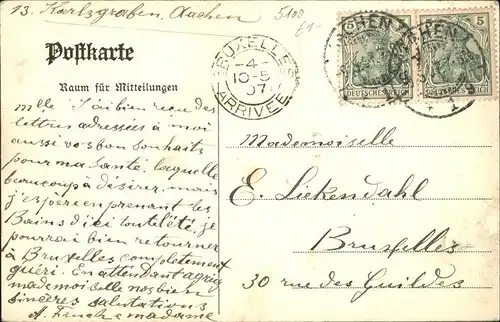 13. Karlsgraben, Aachen
5100
£1-
Postkarte
Raum für Mitteilungen
BRUXELLES
-4-
10-5
07
ARRIVÉE
AACHEN
AACHEN
5
5
DEUTSCHES REICH
DEUTSCHES REICH
1
Mlle J'ai bien reçu des
lettres adressées à moi
aussi vos bon souhaits
pour ma santé, laquelle
beaucoup à désirer, mais
j'espère en prenant les
Bains d'ici tout l'été, je
pourrai bien retourner
à Bruxelles complètement
guéri. En attendant agréez
mademoiselle nos bien
sincères salutations
A. & madame
Mademoiselle
E. Liekendahl
Bruxelles
30 rue des Guildes